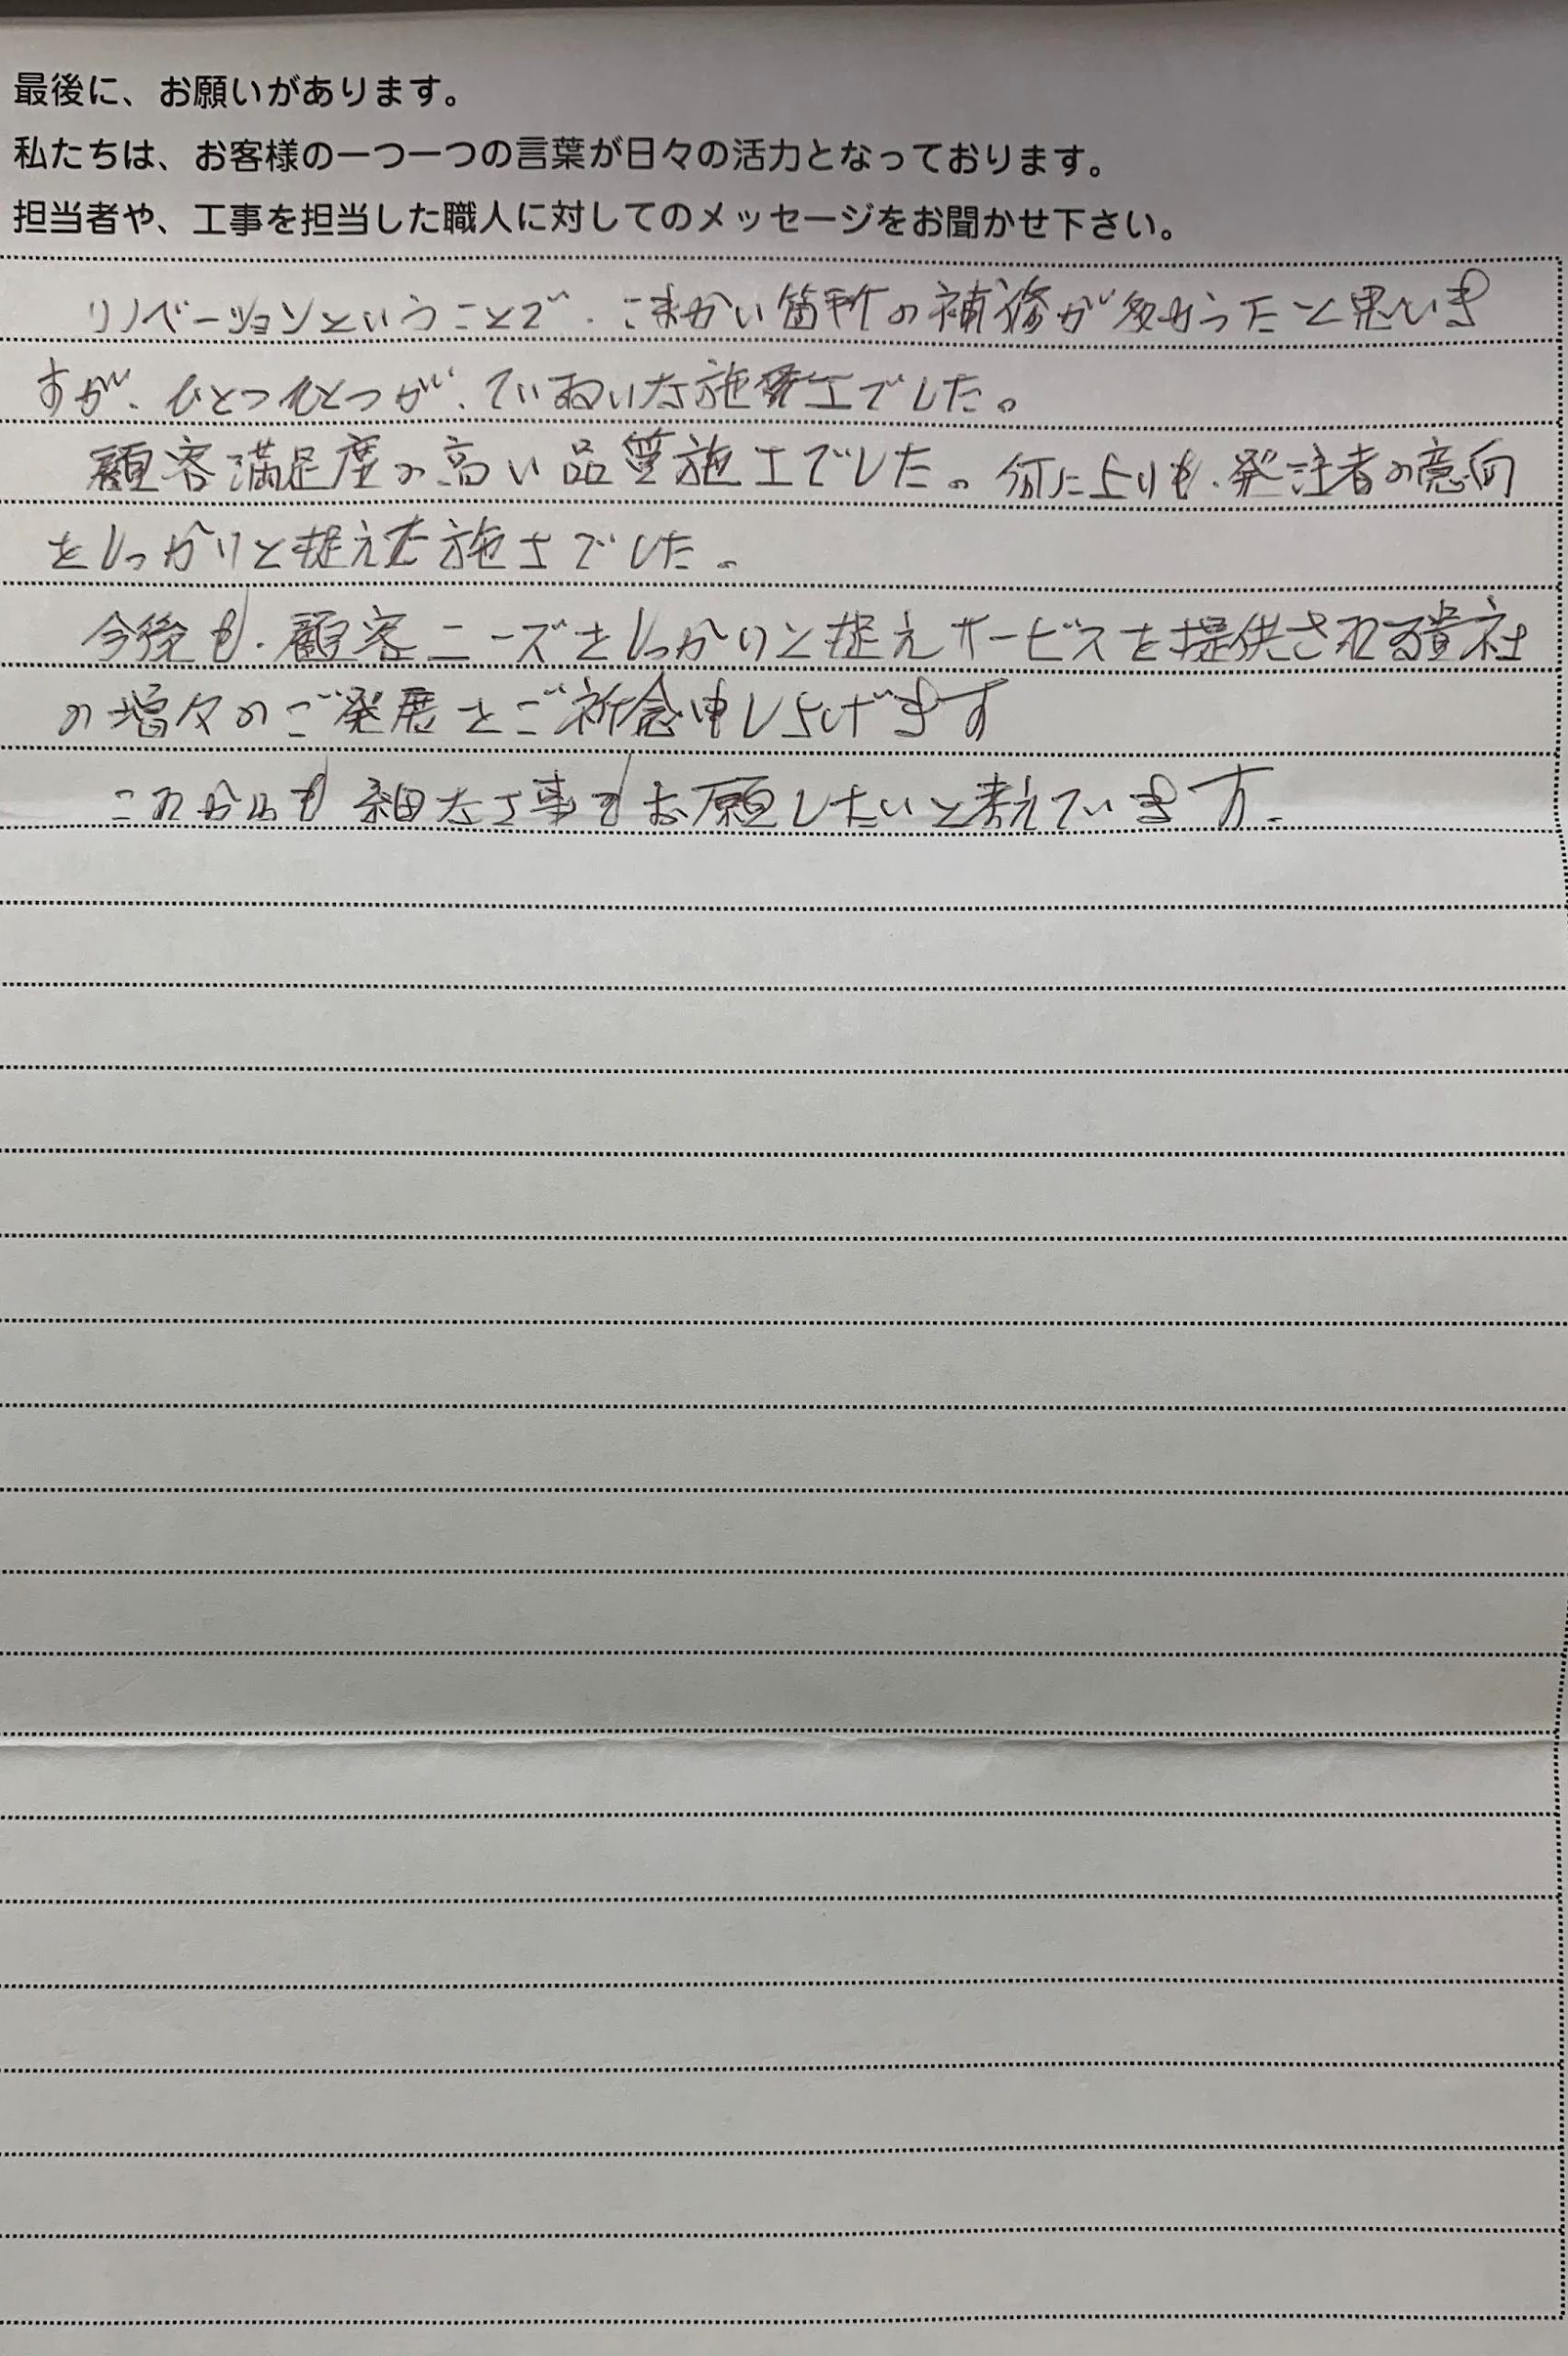 最後に、お願いがあります。
私たちは、お客様の一つ一つの言葉が日々の活力となっております。
担当者や、工事を担当した職人に対してのメッセージをお聞かせ下さい。
リノベーションということで、こまかい箇所の補修が多かったと思いま
すが、ひとつひとつが、ていねいな施工でした。
顧客満足度の高い品質施工でした。何よりも、発注者の意向
をしっかりと捉えた施工でした。
今後も、顧客ニーズをしっかりと捉えサービスを提供される貴社
の増々のご発展をご祈念申し上げます
これからも細な工事をお願したいと考えています。